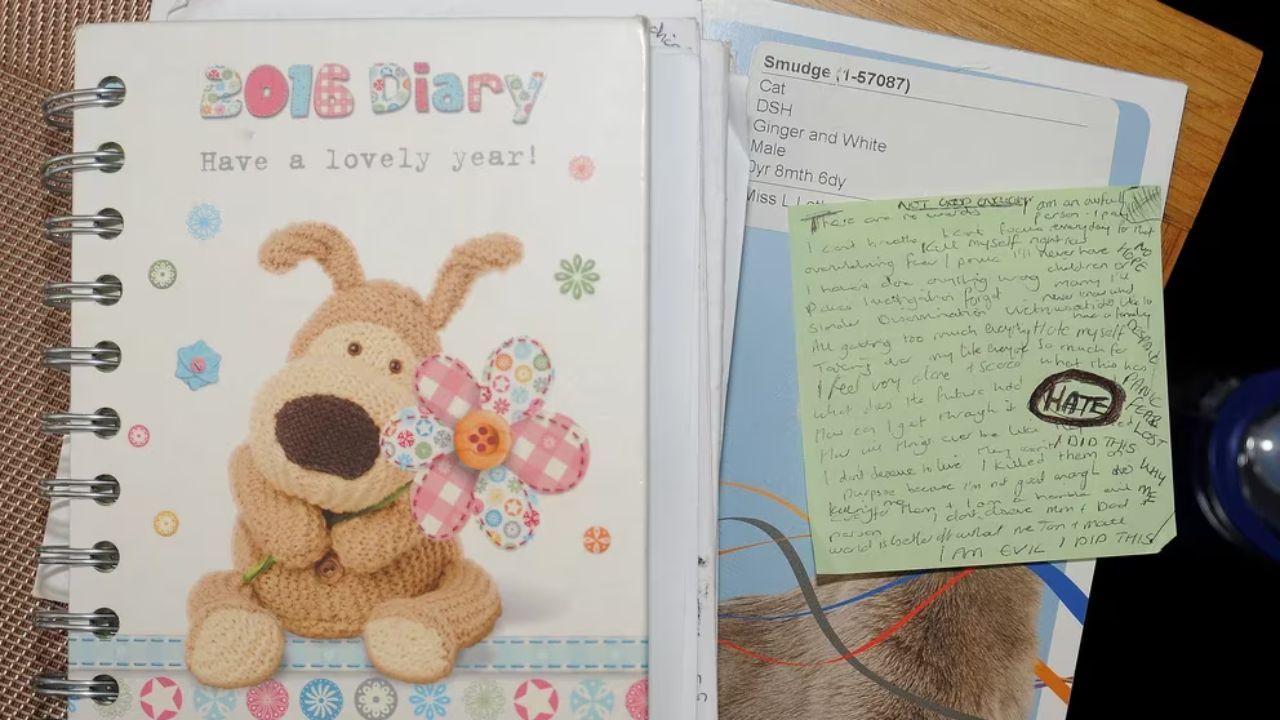 2016 Diary
Have a lovely year!
Smudge (1-57087)
Cat
DSH
Ginger and White
Male
0yr 8mth 6dy
Miss L
NOT GOOD ENOUGH
There are no words I am an awful
person - I pay
I can't breathe I can't focus everyday for that
Kill myself right now
overwhelming fear / panic I'll never have NO
HOPE
I haven't done anything wrong children or
marry I'll
Police Investigation forget never know what
Slander Discrimination Victimisation like to
have a family
All getting too much everything Hate myself
DESPAIR
Taking over my life everyone so much for
I feel very alone + scared what this has
PANIC
what does the future hold
HATE
FEAR
How can I get through it
LOST
How will things ever be like
I DID THIS
I don't deserve to live I killed them on
purpose because I'm not good enough
WHY
ME
to care for them + I am a horrible evil
person I don't deserve Mum + Dad
world is better off without me
I AM EVIL I DID THIS